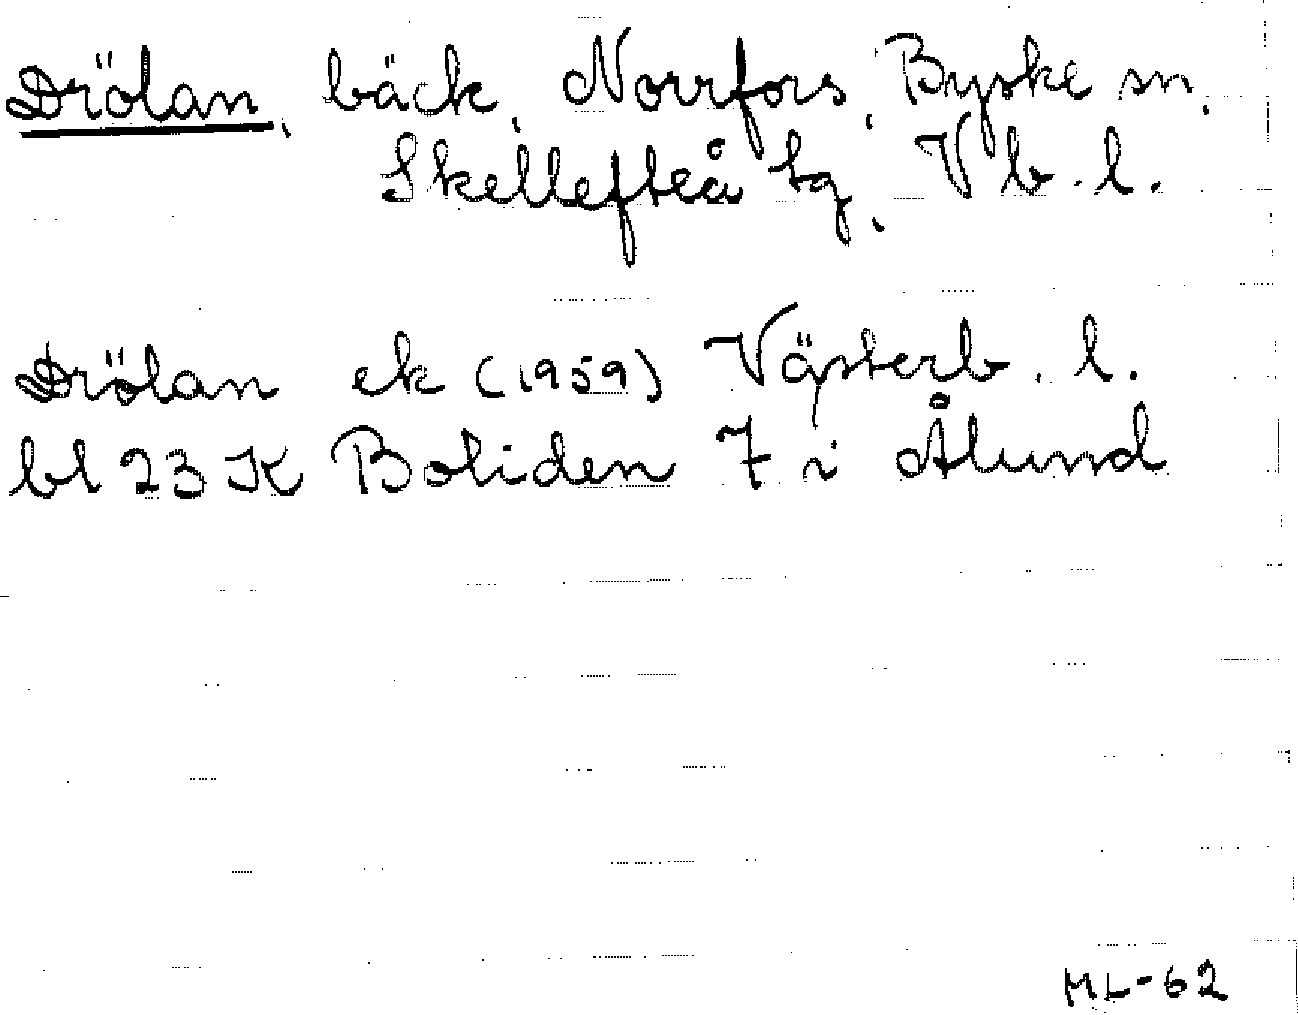 Drölan, bäck, Norrfors, Byske sn,
Skellefteå tg, Vb. l.
Drölan ek (1959) Västerb. l.
bl 23 K Boliden 7 i Ålund
ML-62